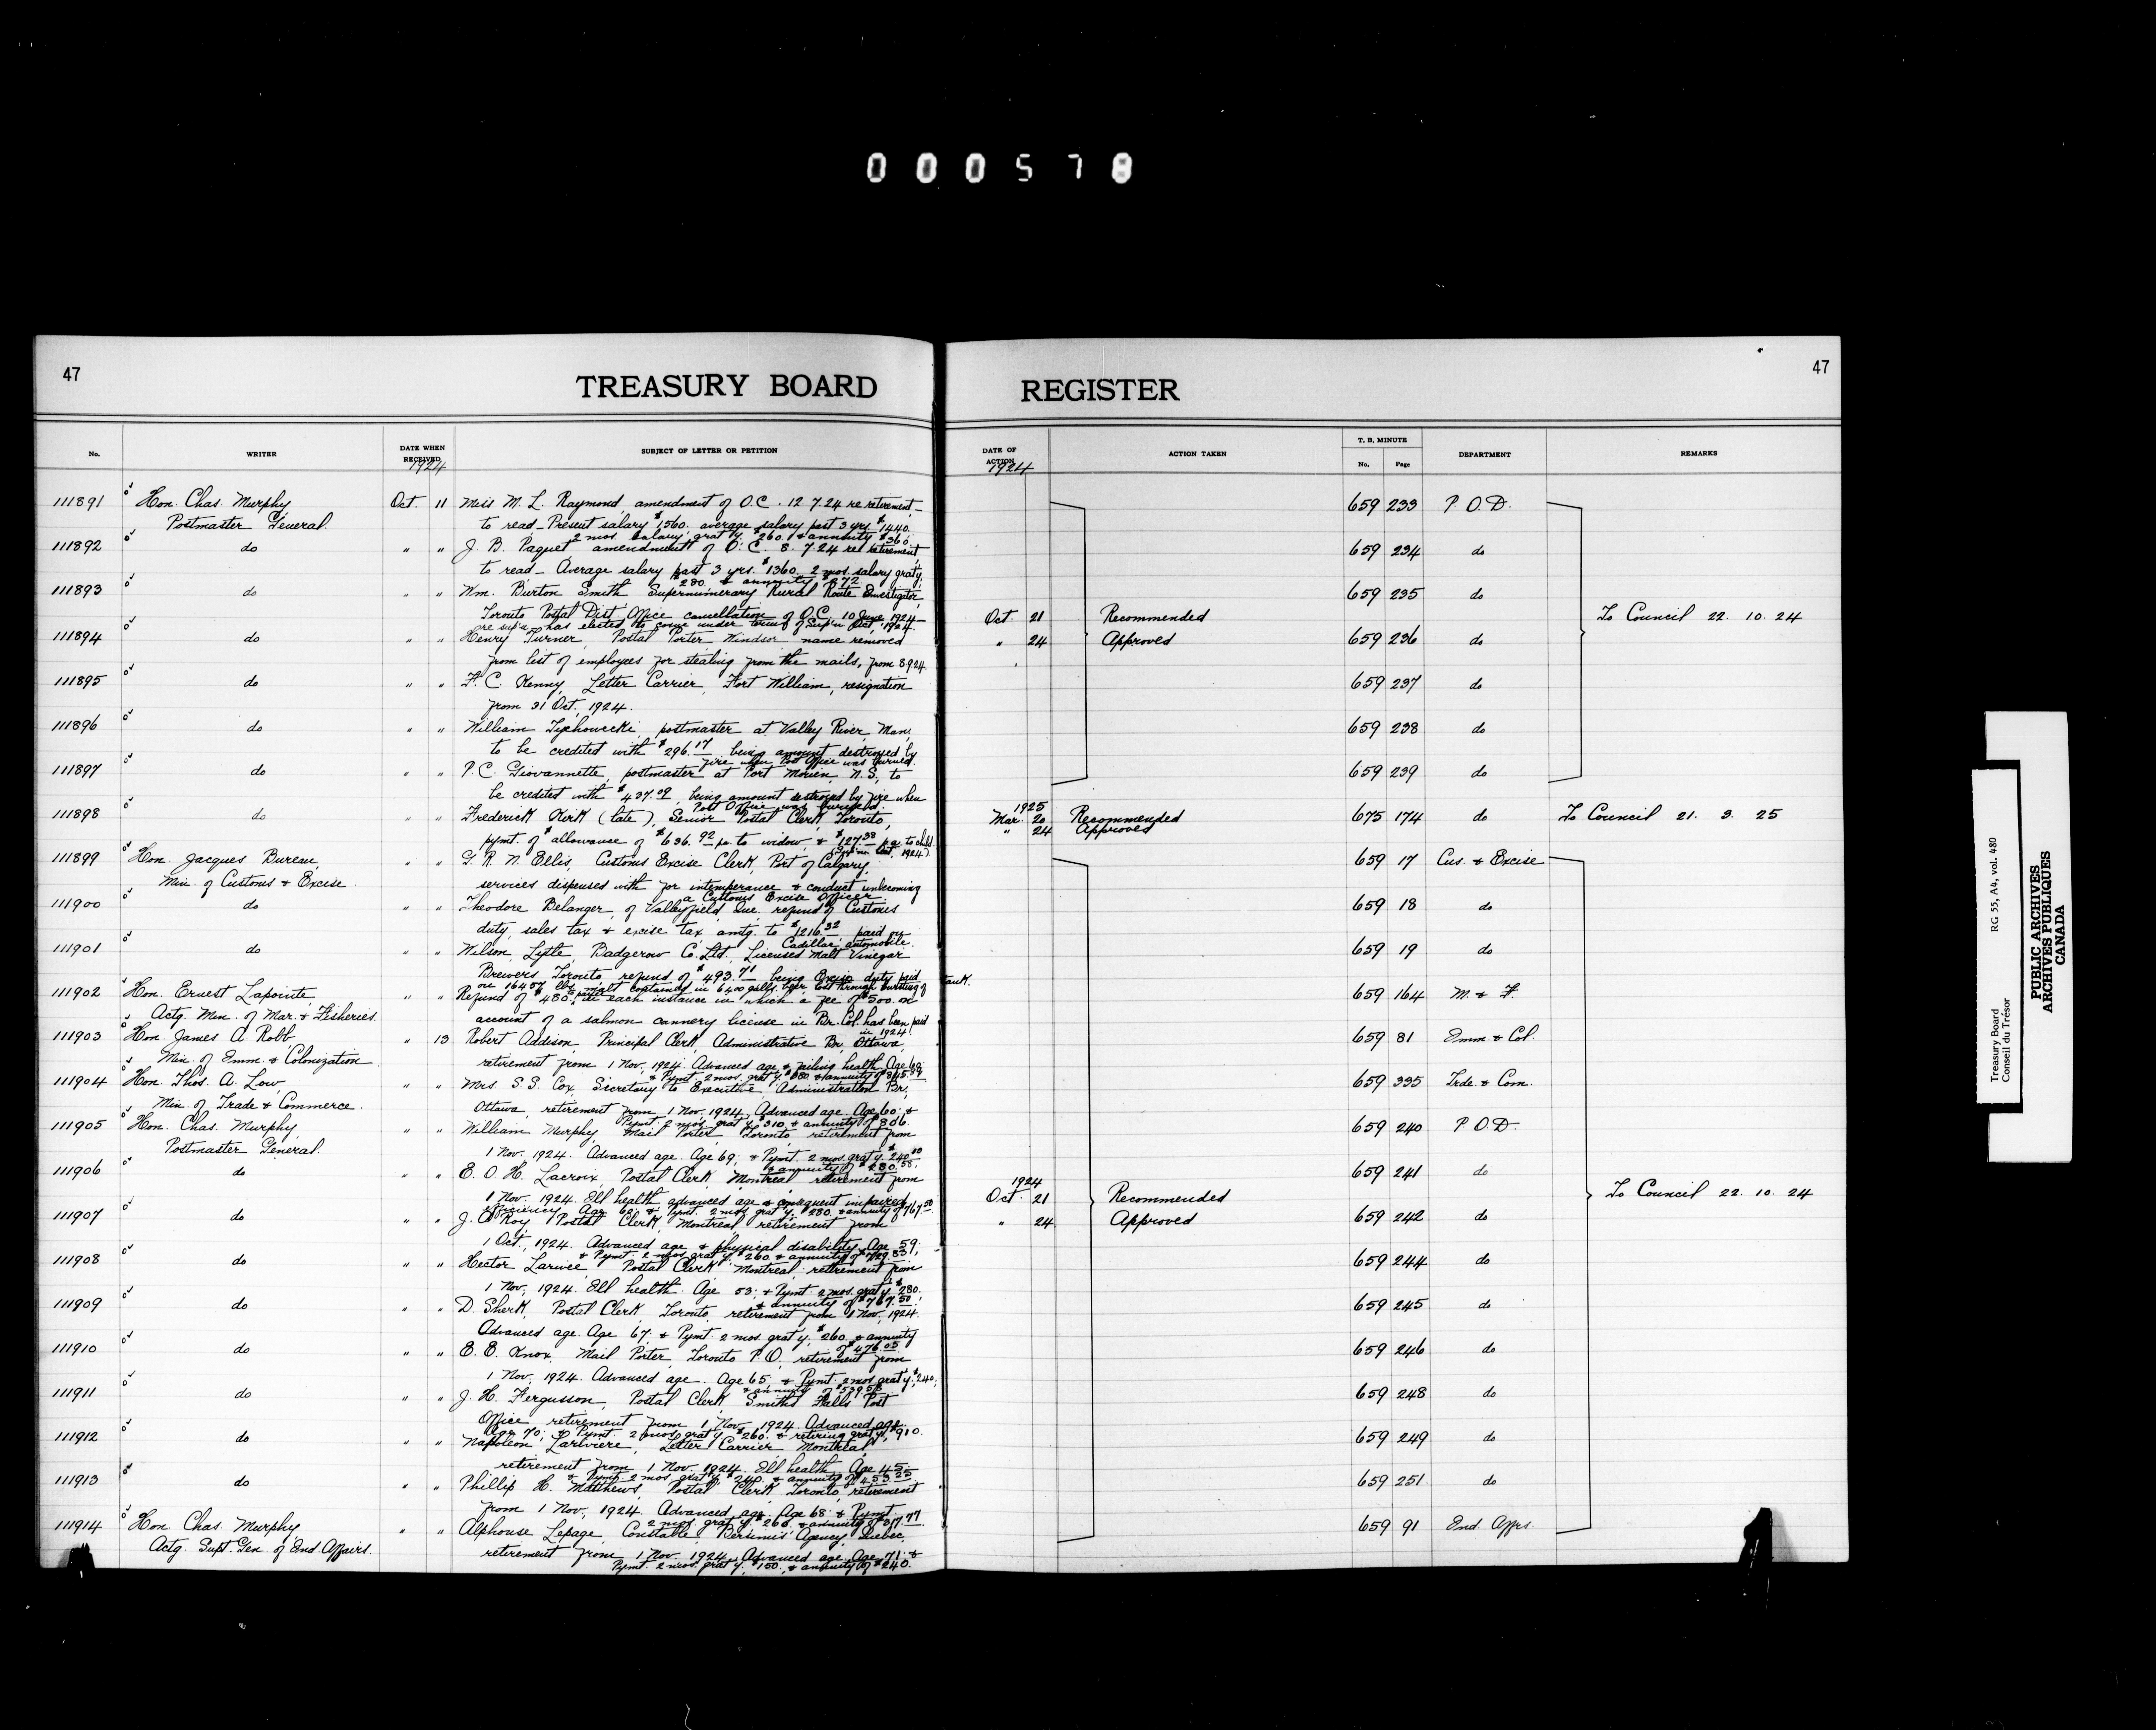 000578
47
TREASURY BOARD REGISTER
47
No.
WRITER
DATE WHEN RECEIVED
1924
SUBJECT OF LETTER OR PETITION
DATE OF ACTION
1924
ACTION TAKEN
T. B. MINUTE
No.
Page
DEPARTMENT
REMARKS
111891 Hon. Chas. Murphy, Oct. 11 Miss M. L. Raymond, amendment of O.C. 12.7.24 re retirement 659 233 P.O.D.
Postmaster General. to read – Present salary $1560. average salary past 3 yrs $1440.
2 mos. salary grat'y. $260. & annuity $360.
111892 do " " J. B. Paquet amendment of O.C. 8.7.24 re retirement 659 234 do
to read – Average salary past 3 yrs. $1360. 2 mos. salary grat'y,
$280. & annuity $672
111893 do " " Wm. Burton Smith Supernumerary Rural Route Investigator, 659 235 do
Toronto Postal Dist. Office cancellation of O.C. 10 June 1924
has elected to come under terms of Sup'n Act, 1924.
Oct. 21 Recommended To Council 22. 10. 24
111894 do " " Henry Turner, Postal Porter Windsor name removed " 24 Approved 659 236 do
from list of employees for stealing from the mails, from 8.9.24.
111895 do " " F. C. Kenny, Letter Carrier, Fort William, resignation 659 237 do
from 31 Oct. 1924.
111896 do " " William Tychowecki, postmaster at Valley River, Man, 659 238 do
to be credited with $296.17 being amount destroyed by
fire when Post Office was burned.
111897 do " " P. C. Giovannette, postmaster at Port Morien, N.S., to 659 239 do
be credited with $437.09, being amount destroyed by fire when
Post Office was burned.
1925
111898 do " " Frederick Kirk (late), Senior Postal Clerk, Toronto, Mar. 20 Recommended 675 174 do To Council 21. 3. 25
" 24 Approved
pymt. of allowance of $636.92 pa. to widow, & $127.38 p.a. to child.
(Sup'n. Act, 1924)
111899 Hon. Jacques Bureau, " " G. R. N. Ellis, Customs Excise Clerk, Port of Calgary, 659 17 Cus. & Excise
Min. of Customs & Excise. services dispensed with for intemperance & conduct unbecoming
a Customs Excise Officer
111900 do " " Theodore Belanger, of Valleyfield, Que. refund of Customs 659 18 do
duty, sales tax & excise tax amtg. to $1216.32 paid on
Cadillac automobile.
111901 do " " Wilson, Lytle, Badgerow Co. Ltd., Licensed Malt Vinegar 659 19 do
Brewers, Toronto refund of $493.71 being Excise duty paid
on 16457 lbs. malt contained in 6400 galls. beer, lost through bursting of tank.
111902 Hon. Ernest Lapointe, " " Refund of $480. in each instance in which a fee of $500. on 659 164 M. & F.
Actg. Min. of Mar. & Fisheries. account of a salmon cannery license in Br. Col. has been paid
in 1924.
111903 Hon. James A. Robb, " 13 Robert Addison, Principal Clerk, Administrative Br. Ottawa, 659 81 Imm. & Col.
Min. of Imm. & Colonization retirement from 1 Nov. 1924. Advanced age & failing health. Age 68
111904 Hon. Thos. A. Low, " " Mrs. S. S. Cox, Secretary to Executive, Administration Br., 659 335 Trde. & Com.
Min. of Trade & Commerce. Ottawa, retirement from 1 Nov. 1924. Advanced age. Age 60. &
Pymt. 2 mos. grat'y. $310. & annuity of $806.
111905 Hon. Chas. Murphy, " " William Murphy, Mail Porter, Toronto, retirement from 659 240 P.O.D.
Postmaster General. 1 Nov. 1924. Advanced age. Age 69; & Pymt. 2 mos. grat'y. $240.00
& annuity of $280.58.
111906 do " " E. O. H. Lacroix, Postal Clerk, Montreal retirement from 659 241 do
1924
1 Nov. 1924. Ill health advanced age & consequent impaired Oct. 21 Recommended To Council 22. 10. 24
efficiency. Age 60. & Pymt. 2 mos. grat'y. $280. & annuity of $767.50.
111907 do " " J. O. Roy, Postal Clerk Montreal retirement from " 24 Approved 659 242 do
1 Oct., 1924. Advanced age & physical disability. Age 59;
& Pymt. 2 mos. grat'y. $260. & annuity of $729.83;
111908 do " " Hector Larivee, Postal Clerk Montreal retirement from 659 244 do
1 Nov. 1924. Ill health. Age 53; & Pymt. 2 mos. grat'y. $280.
& annuity of $767.50.
111909 do " " D. Sherk, Postal Clerk, Toronto, retirement from 1 Nov. 1924. 659 245 do
Advanced age. Age 67. & Pymt. 2 mos. grat'y. $260. & annuity
of $476.05
111910 do " " E. E. Knox, Mail Porter, Toronto P.O., retirement from 659 246 do
1 Nov. 1924. Advanced age. Age 65. & Pymt. 2 mos. grat'y. $240;
111911 do " " J. H. Fergusson, Postal Clerk Smiths Falls Post 659 248 do
Office retirement from 1 Nov. 1924. Advanced age.
Age 70; & Pymt. 2 mos. grat'y. $260. & retiring grat'y. $910.
111912 do " " Napoleon Lariviere, Letter Carrier Montreal 659 249 do
retirement from 1 Nov. 1924. Ill health. Age 45.
& Pymt. 2 mos. grat'y. $240. & annuity of $453.25
111913 do " " Phillip H. Matthews, Postal Clerk Toronto, retirement 659 251 do
from 1 Nov. 1924. Advanced age. Age 68. & Pymt.
2 mos. grat'y. $260. & annuity of $317.77
111914 Hon. Chas. Murphy, " " Alphonse Lepage, Constable, Bersimis Agency, Quebec, 659 91 Ind. Affrs.
Actg. Supt. Gen. of Ind. Affairs. retirement from 1 Nov. 1924. Advanced age. Age 71. &
Pymt. 2 mos. grat'y. $150., & annuity of $240.
Treasury Board
Conseil du Trésor
RG 55, A4, vol. 480
PUBLIC ARCHIVES
ARCHIVES PUBLIQUES
CANADA